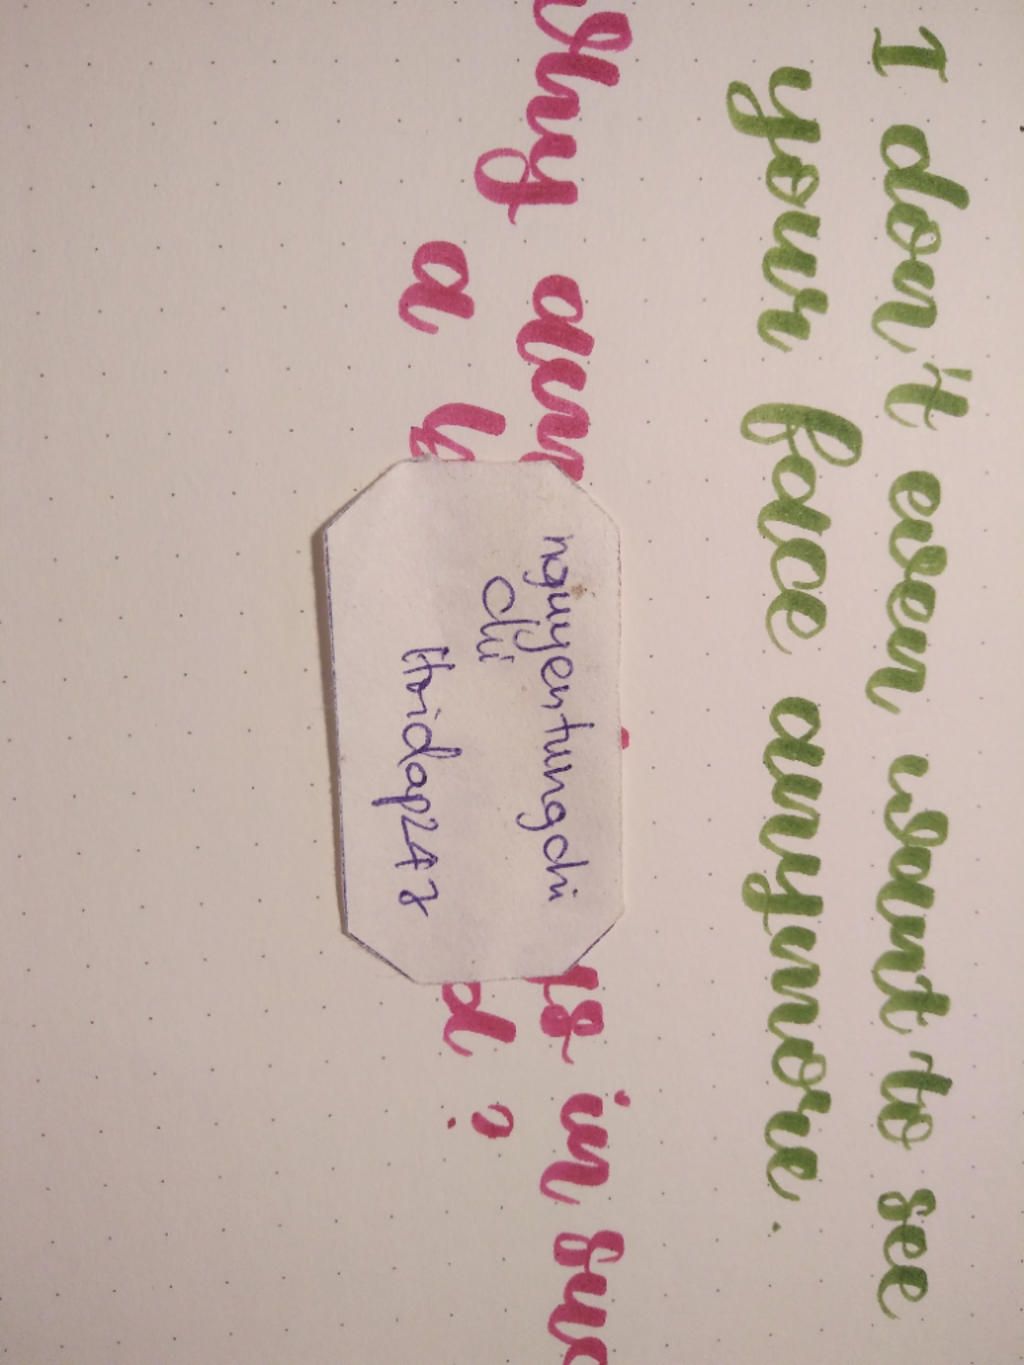 I don't even want to see
your face anymore.
Why
in
a
?
nguyentungchi
chi
Hoidap247